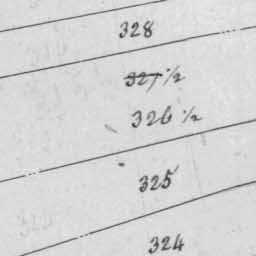 328
327 1/2
326 1/2
325
324